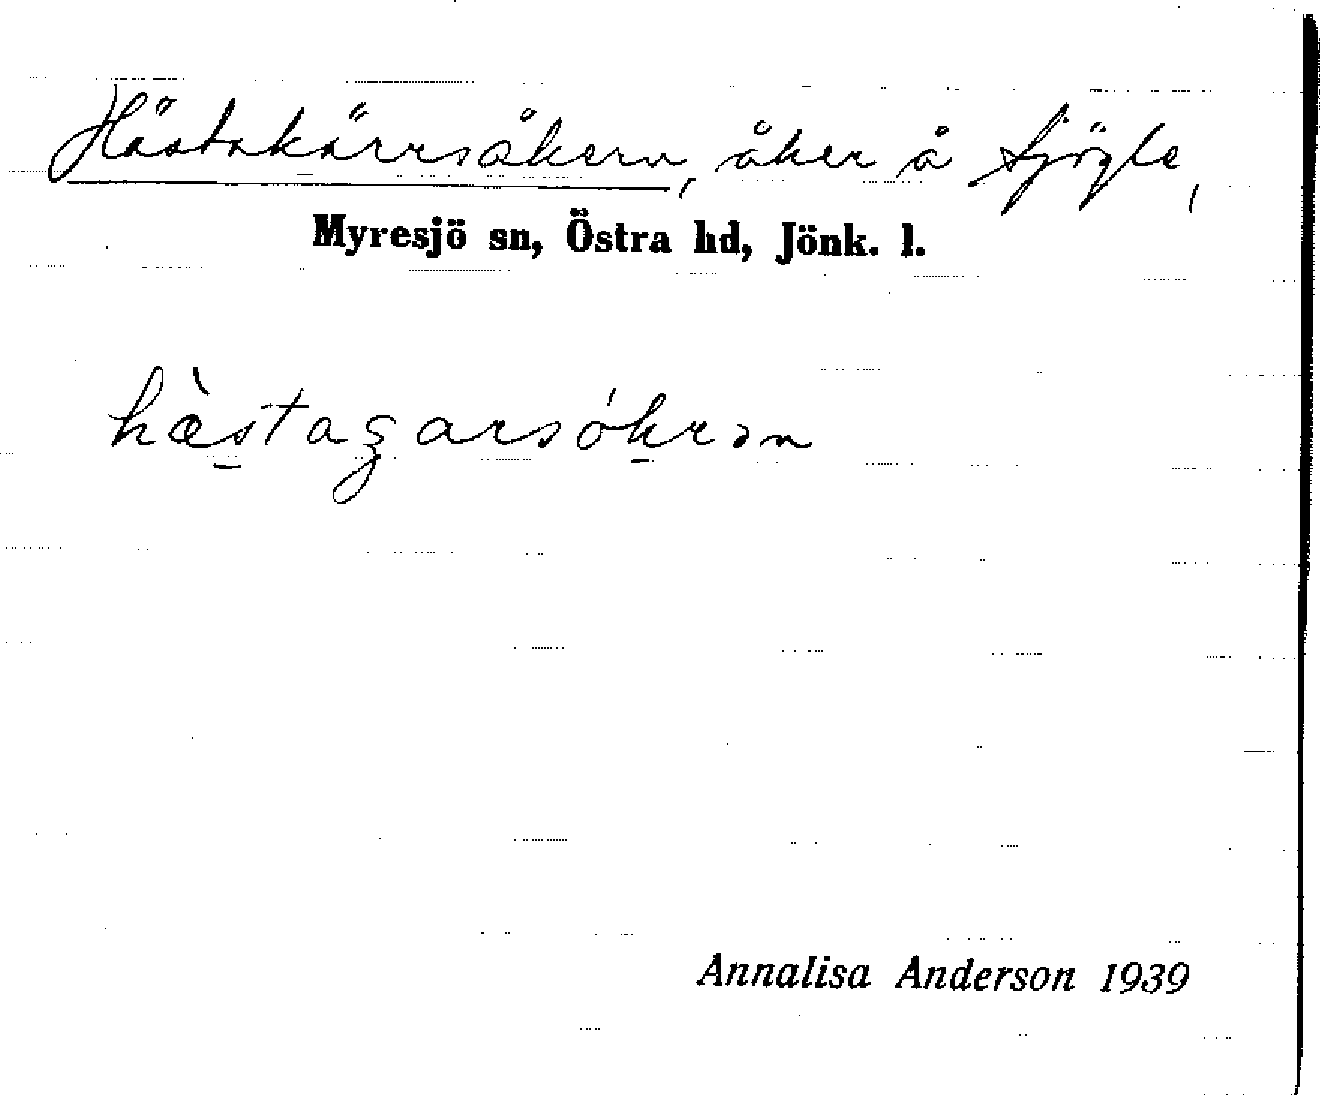 Hästakärrsåkern, åker å Sjögle,
Myresjö sn, Östra hd, Jönk. l.
hæ̀stagarsókrən
Annalisa Anderson 1939